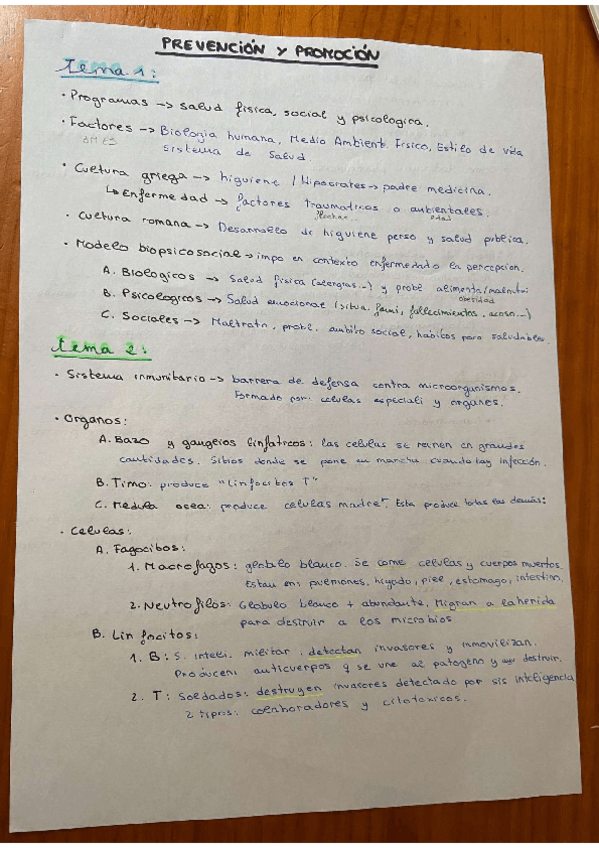 PREVENCIÓN Y PROMOCIÓN
Tema 1:
· Programas -> salud física, social y psicologica.
· Factores -> Biologia humana, Medio Ambient. Físico, Estilo de vida
sistema de Salud.
· Cultura griega -> higuiene / Hipocrates -> padre medicina.
↳ Enfermedad -> factores traumaticos o ambientales.
flechas
· Cultura romana -> Desarrollo de higuiene perso y salud publica.
· Modelo biopsicosocial -> impo en contexto enfermedad la percepcion.
A. Biologicos -> Salud fisica (alergias...) y probl alimenta/malnutri
obesidad
B. Psicologicos -> Salud emocional (situa. fami, fallecimientos, acoso...)
C. Sociales -> Maltrato, probl. ambito social, habitos poco saludables.
tema 2:
· Sistema inmunitario -> barrera de defensa contra microorganismos.
Formado por: celulas especiali y organos.
· Organos:
A. Bazo y gangeios linfatricos: las celulas se reunen en grandes
cantidades. Sitios donde se pone en marcha cuando hay infección.
B. Timo: produce "linfocitos T"
C. Medula osea: produce celulas madre. Esta produce todas las demás:
· Celulas:
A. Fagocitos:
1. Macrofagos: globulo blanco. Se come celulas y cuerpos muertos.
Estan en: pulmones, higado, piel, estomago, intestin.
2. Neutrofilos: Globulo blanco + abundante, Migran a la herida
para destruir a los microbios
B. Linfocitos:
1. B: S. inteli. militar. detectan invasores y inmovilizan.
Producen: anticuerpos q se une al patogeno y destruir.
2. T: Soldados: destruyen invasores detectado por sis inteligencia
2 tipos: colaboradores y citotoxicos.